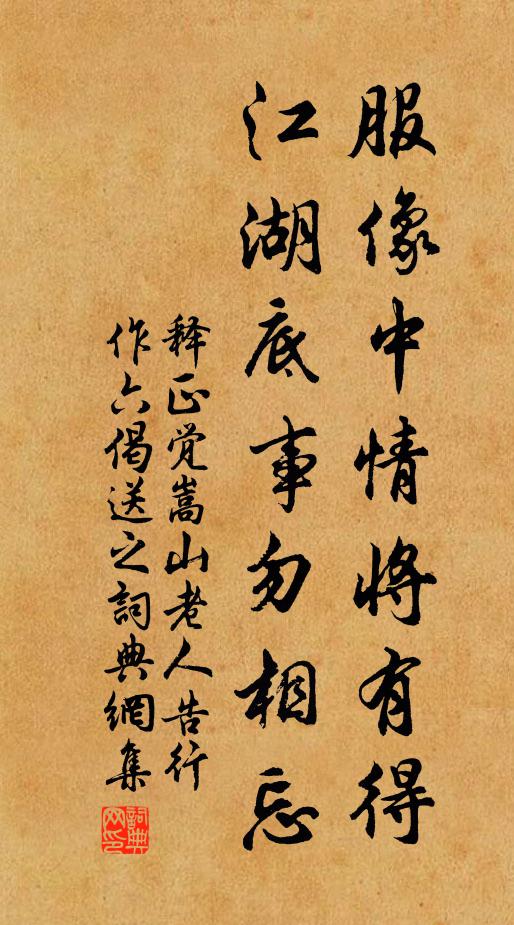 服像中情将有得
江湖底事勿相忘
释正觉嵩山老人告行
作六偈送之詞典網集
詞典网印